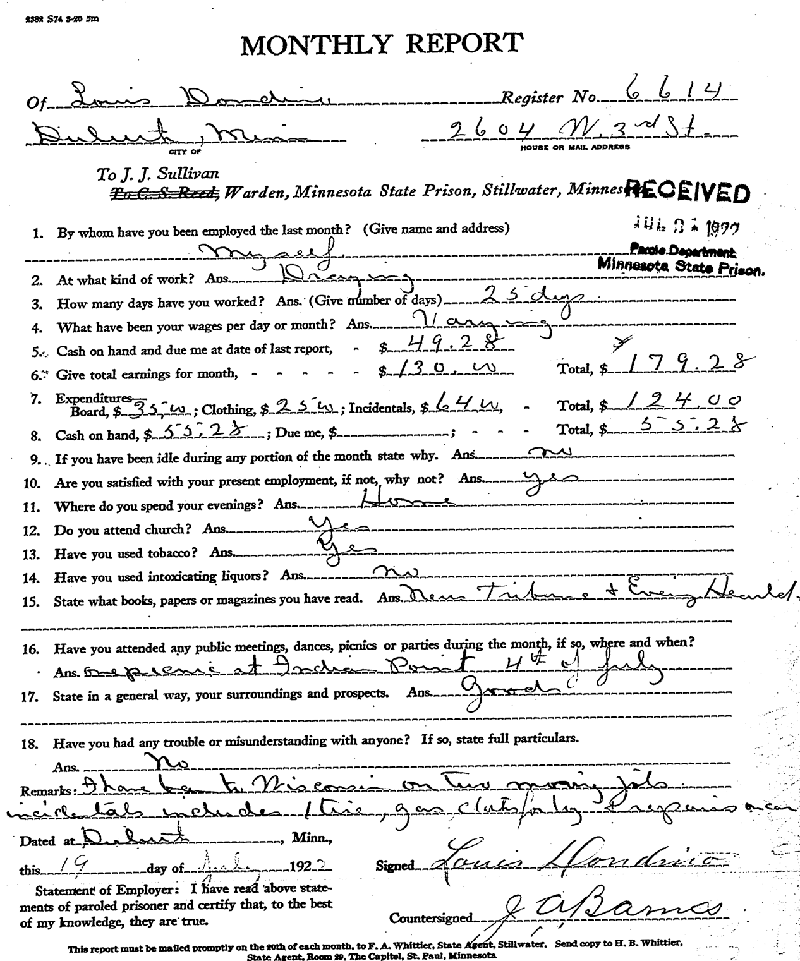 2382 S74 3-20 5m
MONTHLY REPORT
Of Louis Dondino Register No. 6614
Duluth, Minn 2604 W. 3rd St.
CITY OF HOUSE OR MAIL ADDRESS
To J. J. Sullivan
To C. S. Reed, Warden, Minnesota State Prison, Stillwater, Minnes
RECEIVED
Parole Department
Minnesota State Prison.
1. By whom have you been employed the last month? (Give name and address)
Myself
2. At what kind of work? Ans. Draying
3. How many days have you worked? Ans. (Give number of days) 25 days.
4. What have been your wages per day or month? Ans. Varying
5. Cash on hand and due me at date of last report, - $ 49.28
6. Give total earnings for month, - - - - - $ 130.00 Total, $ 179.28
7. Expenditures—
Board, $ 35.00; Clothing, $ 25.00; Incidentals, $ 64.00, - Total, $ 124.00
8. Cash on hand, $ 55.28; Due me, $ ; - - - Total, $ 55.28
9. If you have been idle during any portion of the month state why. Ans. no
10. Are you satisfied with your present employment, if not, why not? Ans. yes
11. Where do you spend your evenings? Ans. Home
12. Do you attend church? Ans. Yes
13. Have you used tobacco? Ans. Yes
14. Have you used intoxicating liquors? Ans. no
15. State what books, papers or magazines you have read. Ans. News Tribune + Evening Herald.
16. Have you attended any public meetings, dances, picnics or parties during the month, if so, where and when?
Ans. picnic at Indian Point 4th of July
17. State in a general way, your surroundings and prospects. Ans. Good
18. Have you had any trouble or misunderstanding with anyone? If so, state full particulars.
Ans. No
Remarks: I have been to Wisconsin on two moving jobs.
incidentals includes 1 tire, gas, on car
Dated at Duluth, Minn.,
this 19 day of July 1922 Signed Louis Dondino
Statement of Employer: I have read above state-
ments of paroled prisoner and certify that, to the best
of my knowledge, they are true. Countersigned J A Barnes
This report must be mailed promptly on the 20th of each month, to F. A. Whittier, State Agent, Stillwater. Send copy to H. B. Whittier,
State Agent, Room 29, The Capitol, St. Paul, Minnesota.